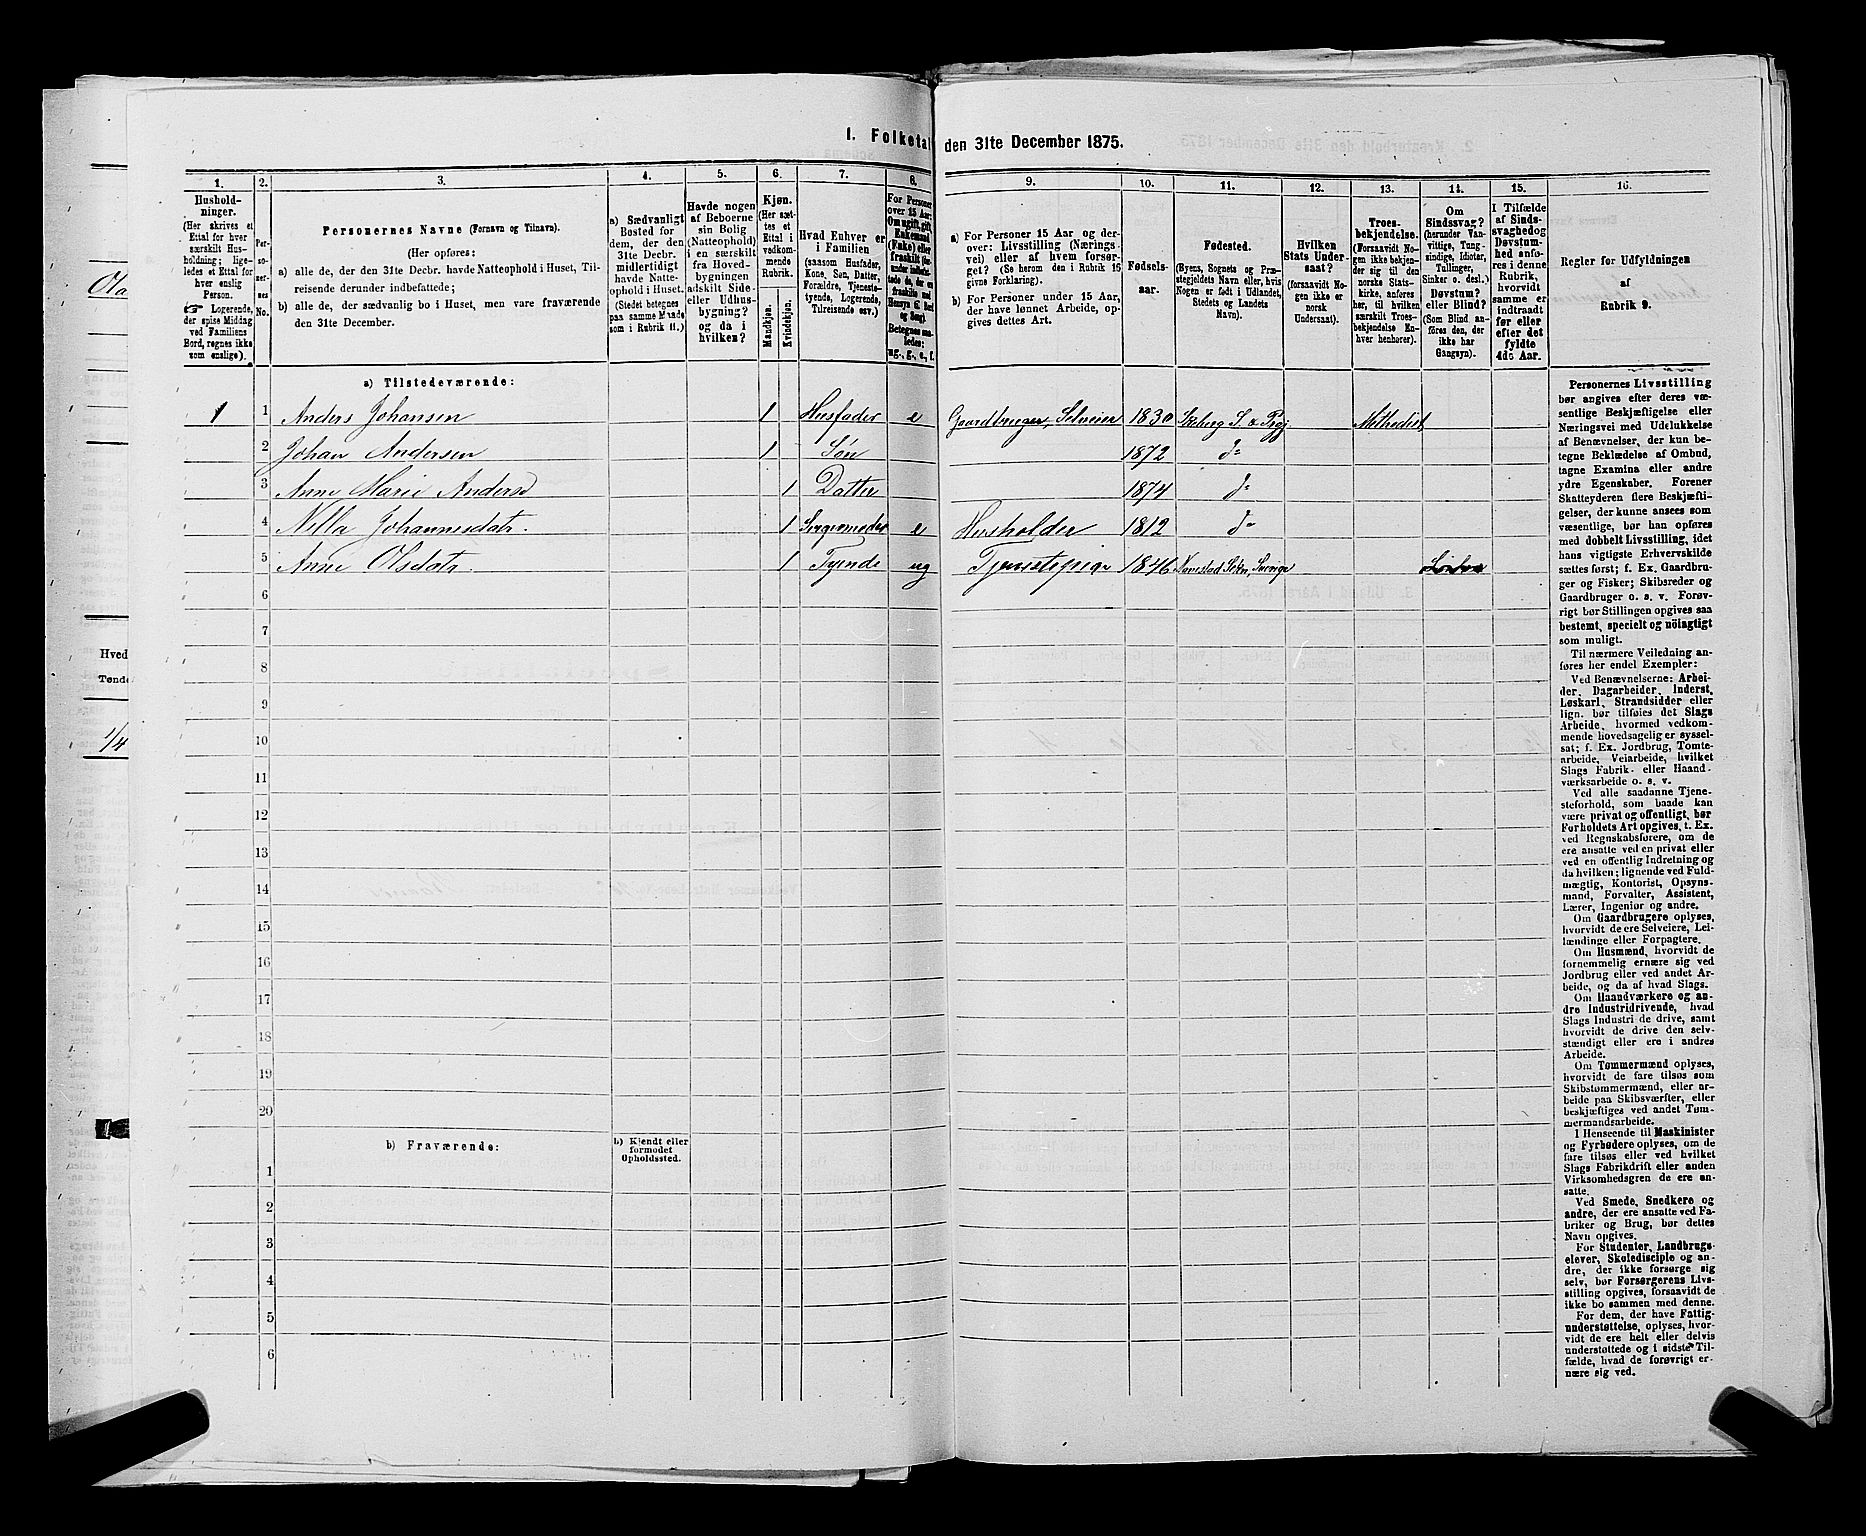 1. Folketal den 31te December 1875.
1. 2. 3. 4. 5. 6. 7. 8. 9. 10. 11. 12. 13. 14. 15. 16.
Husholdninger.
(Her skrives et
Ettal for hver
særskilt Hus-
holdning; lige-
ledes et Ettal for
hver enslig
Person.
☞ Logerende,
der spise Middag
ved Familiens
Bord, regnes ikke
som enslige).
Per-
soner-
nes
No.
Personernes Navne (Fornavn og Tilnavn).
(Her opføres:
a) alle de, der den 31te Decbr. havde Natteophold i Huset, Til-
reisende derunder indbefattede;
b) alle de, der sædvanlig bo i Huset, men vare fraværende
den 31te December.
a) Sædvanligt
Bosted for
dem, der den
31te Decbr.
midlertidigt
havde Natte-
ophold i Huset.
(Stedet betegnes
paa samme Maade
som i Rubrik 11.)
Havde nogen
af Beboerne
sin Bolig
(Natteophold)
i en særskilt
fra Hoved-
bygningen
adskilt Side-
eller Udhus-
bygning?
og da i
hvilken?
Kjøn.
(Her sæt-
tes et
Ettal i
vedkom-
mende
Rubrik.
Mandkjøn.
Kvindekjøn.
Hvad Enhver er
i Familien
(saasom Husfader,
Kone, Søn, Datter,
Forældre, Tjeneste-
tyende, Logerende,
Tilreisende osv.)
For Personer
over 15 Aar:
a) For Personer 15 Aar og der-
over: Livsstilling (Nærings-
vei) eller af hvem forsør-
get? (Se herom den i Rubrik 16
givne Forklaring).
b) For Personer under 15 Aar,
der have lønnet Arbeide, op-
gives dettes Art.
Fødsels-
aar.
Fødested.
(Byens, Sognets og Præ-
stegjeldets Navn eller, hvis
Nogen er født i Udlandet,
Stedets og Landets
Navn).
Hvilken
Stats Under-
saat?
(forsaavidt No-
gen ikke er
norsk
Undersaat).
Troes-
bekjendelse.
(Forsaavidt No-
gen ikke bekjen-
der sig til den
norske Stats-
kirke, anføres
her, til hvilken
særskilt Troes-
bekjendelse En-
hver henhører).
Om
Sindssvag?
(herunder Van-
vittige, Tung-
sindige, Idioter,
Tullinger,
Sinker o. desl.).
Døvstum?
eller Blind?
(Som Blind an-
føres den, der
ikke har
Gangsyn).
I Tilfælde
af Sinds-
svaghed og
Døvstum-
hed anfø-
res i denne
Rubrik,
hvorvidt
samme er
indtraadt
før eller
efter det
fyldte
4de Aar.
Regler for Udfyldningen
af
Rubrik 9.
a) Tilstedeværende:
1 1 Anders Johansen 1 Husfader e Gaardbruger, Selveier 1830 Methodist
2 Johan Andersen 1 Søn 1872 do
3 Anne Marie Andersd 1 Datter 1874 do
4 Nella Johannesdatr. 1 e Husholder 1812 do
5 Anne Olsdatr. 1 Tyende ug Tjenestepige 1846
6
7
8
9
10
11
12
13
14
15
16
17
18
19
20
b) Fraværende:
b) Kjendt eller
formodet
Opholdssted.
1
2
3
4
5
6
Personernes Livsstilling
bør angives efter deres væ-
sentlige Beskjæftigelse eller
Næringsvei med Udelukkelse
af Benævnelser, der kun be-
tegne Beklædelse af Ombud,
tagne Examina eller andre
ydre Egenskaber. Forener
Skatteyderen flere Beskjæfti-
gelser, der kunne ansees som
væsentlige, bør han opføres
med dobbelt Livsstilling, idet
hans vigtigste Erhvervskilde
sættes først; f. Ex. Gaardbru-
ger og Fisker; Skibsreder og
Gaardbruger o. s. v. Forøv-
rigt bør Stillingen opgives saa
bestemt, specielt og nöiagtigt
som muligt.
Til nærmere Veiledning an-
føres her endel Exempler:
Ved Benævnelserne: Arbei-
der, Dagarbeider, Inderst,
Løskarl, Strandsidder eller
lign. bør tilføies det Slags
Arbeide, hvormed vedkom-
mende hovedsagelig er syssel-
sat; f. Ex. Jordbrug, Tomte-
arbeide, Veiarbeide, hvilket
Slags Fabrik- eller Haand-
værksarbeide o. s. v.
Ved alle saadanne Tjene-
steforhold, som baade kan
være privat og offentligt, bør
Forholdets Art opgives, t. Ex.
ved Regnskabsførere, om de
ere ansatte ved en privat eller
ved en offentlig Indretning og
da hvilken; lignende ved Fuld-
mægtig, Kontorist, Opsyns-
mand, Forvalter, Assistent,
Lærer, Ingeniør og andre.
Om Gaardbrugere oplyses,
hvorvidt de ere Selveiere, Lei-
lændinge eller Forpagtere.
Om Husmænd, hvorvidt de
fornemmelig ernære sig ved
Jordbrug eller ved andet Ar-
beide, og da af hvad Slags.
Om Haandværkere og an-
dre Industridrivende, hvad
Slags Industri de drive, samt
hvorvidt de drive den selv-
stændigt eller ere i andres
Arbeide.
Om Tømmermænd oplyses,
hvorvidt de fare tilsøs som
Skibstømmermænd, eller ar-
beide paa Skibsværfter, eller
beskjæftiges ved andet Tøm-
mermandsarbeide.
I Henseende til Maskinister
og Fyrbødere oplyses, om de
fare tilsøs eller ved hvilket
Slags Fabrikdrift eller anden
Virksomhedsgren de ere an-
satte.
Ved Smede, Snedkere og
andre, der ere ansatte ved Fa-
briker og Brug, bør dettes
Navn opgives.
For Studenter, Landbrugs-
elever, Skoledisciple og an-
dre, der ikke forsørge sig
selv, bør Forsørgerens Livs-
stilling opgives, forsaavidt de
ikke bo sammen med denne.
For dem, der have Fattig-
understøttelse, oplyses, hvor-
vidt de ere helt eller delvis
understøttede og i sidste Til-
fælde, hvad de forøvrigt er-
nære sig ved.
Hved
Tønde
1/4